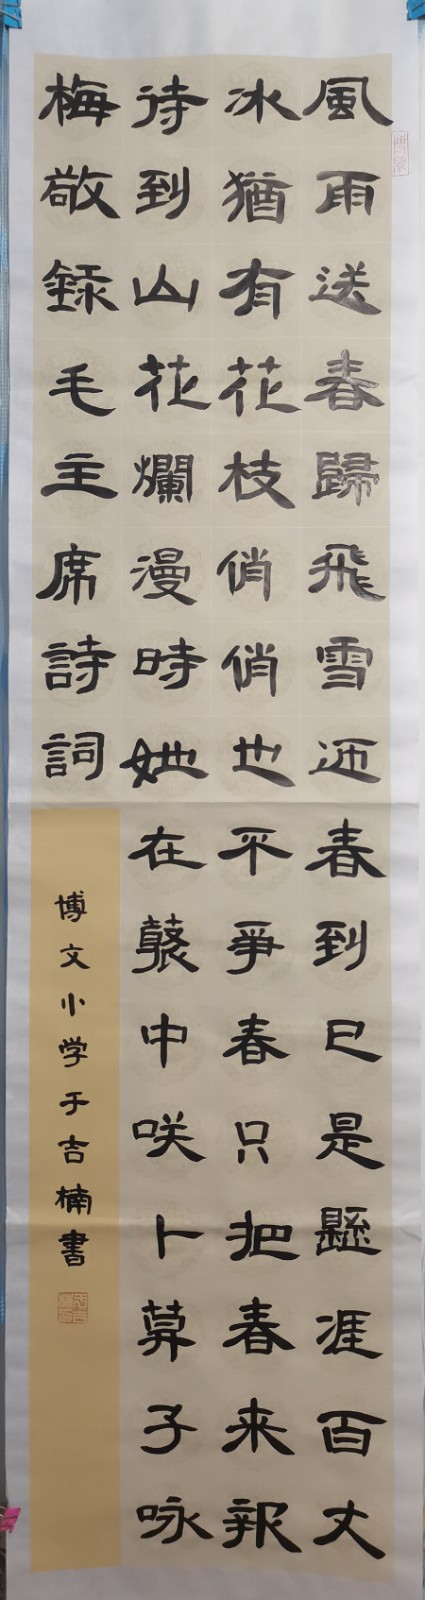 風雨送春歸飛雪迎春到已是懸崖百丈
冰猶有花枝俏俏也不爭春只把春来報
待到山花爛漫時她在叢中咲卜算子咏
梅敬録毛主席詩詞
博文小学于吉楠書